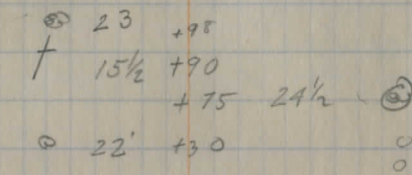 23 +98
15½ +90
+75 24½
22' +30